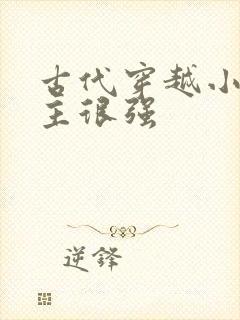 古代穿越小
主很强
逆锋